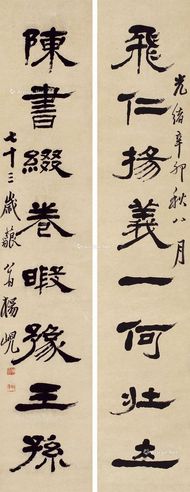 飛仁揚義一何壯士
光緒辛卯秋八月
陳書綴卷暇豫王孫
七十三歲藐翁楊峴